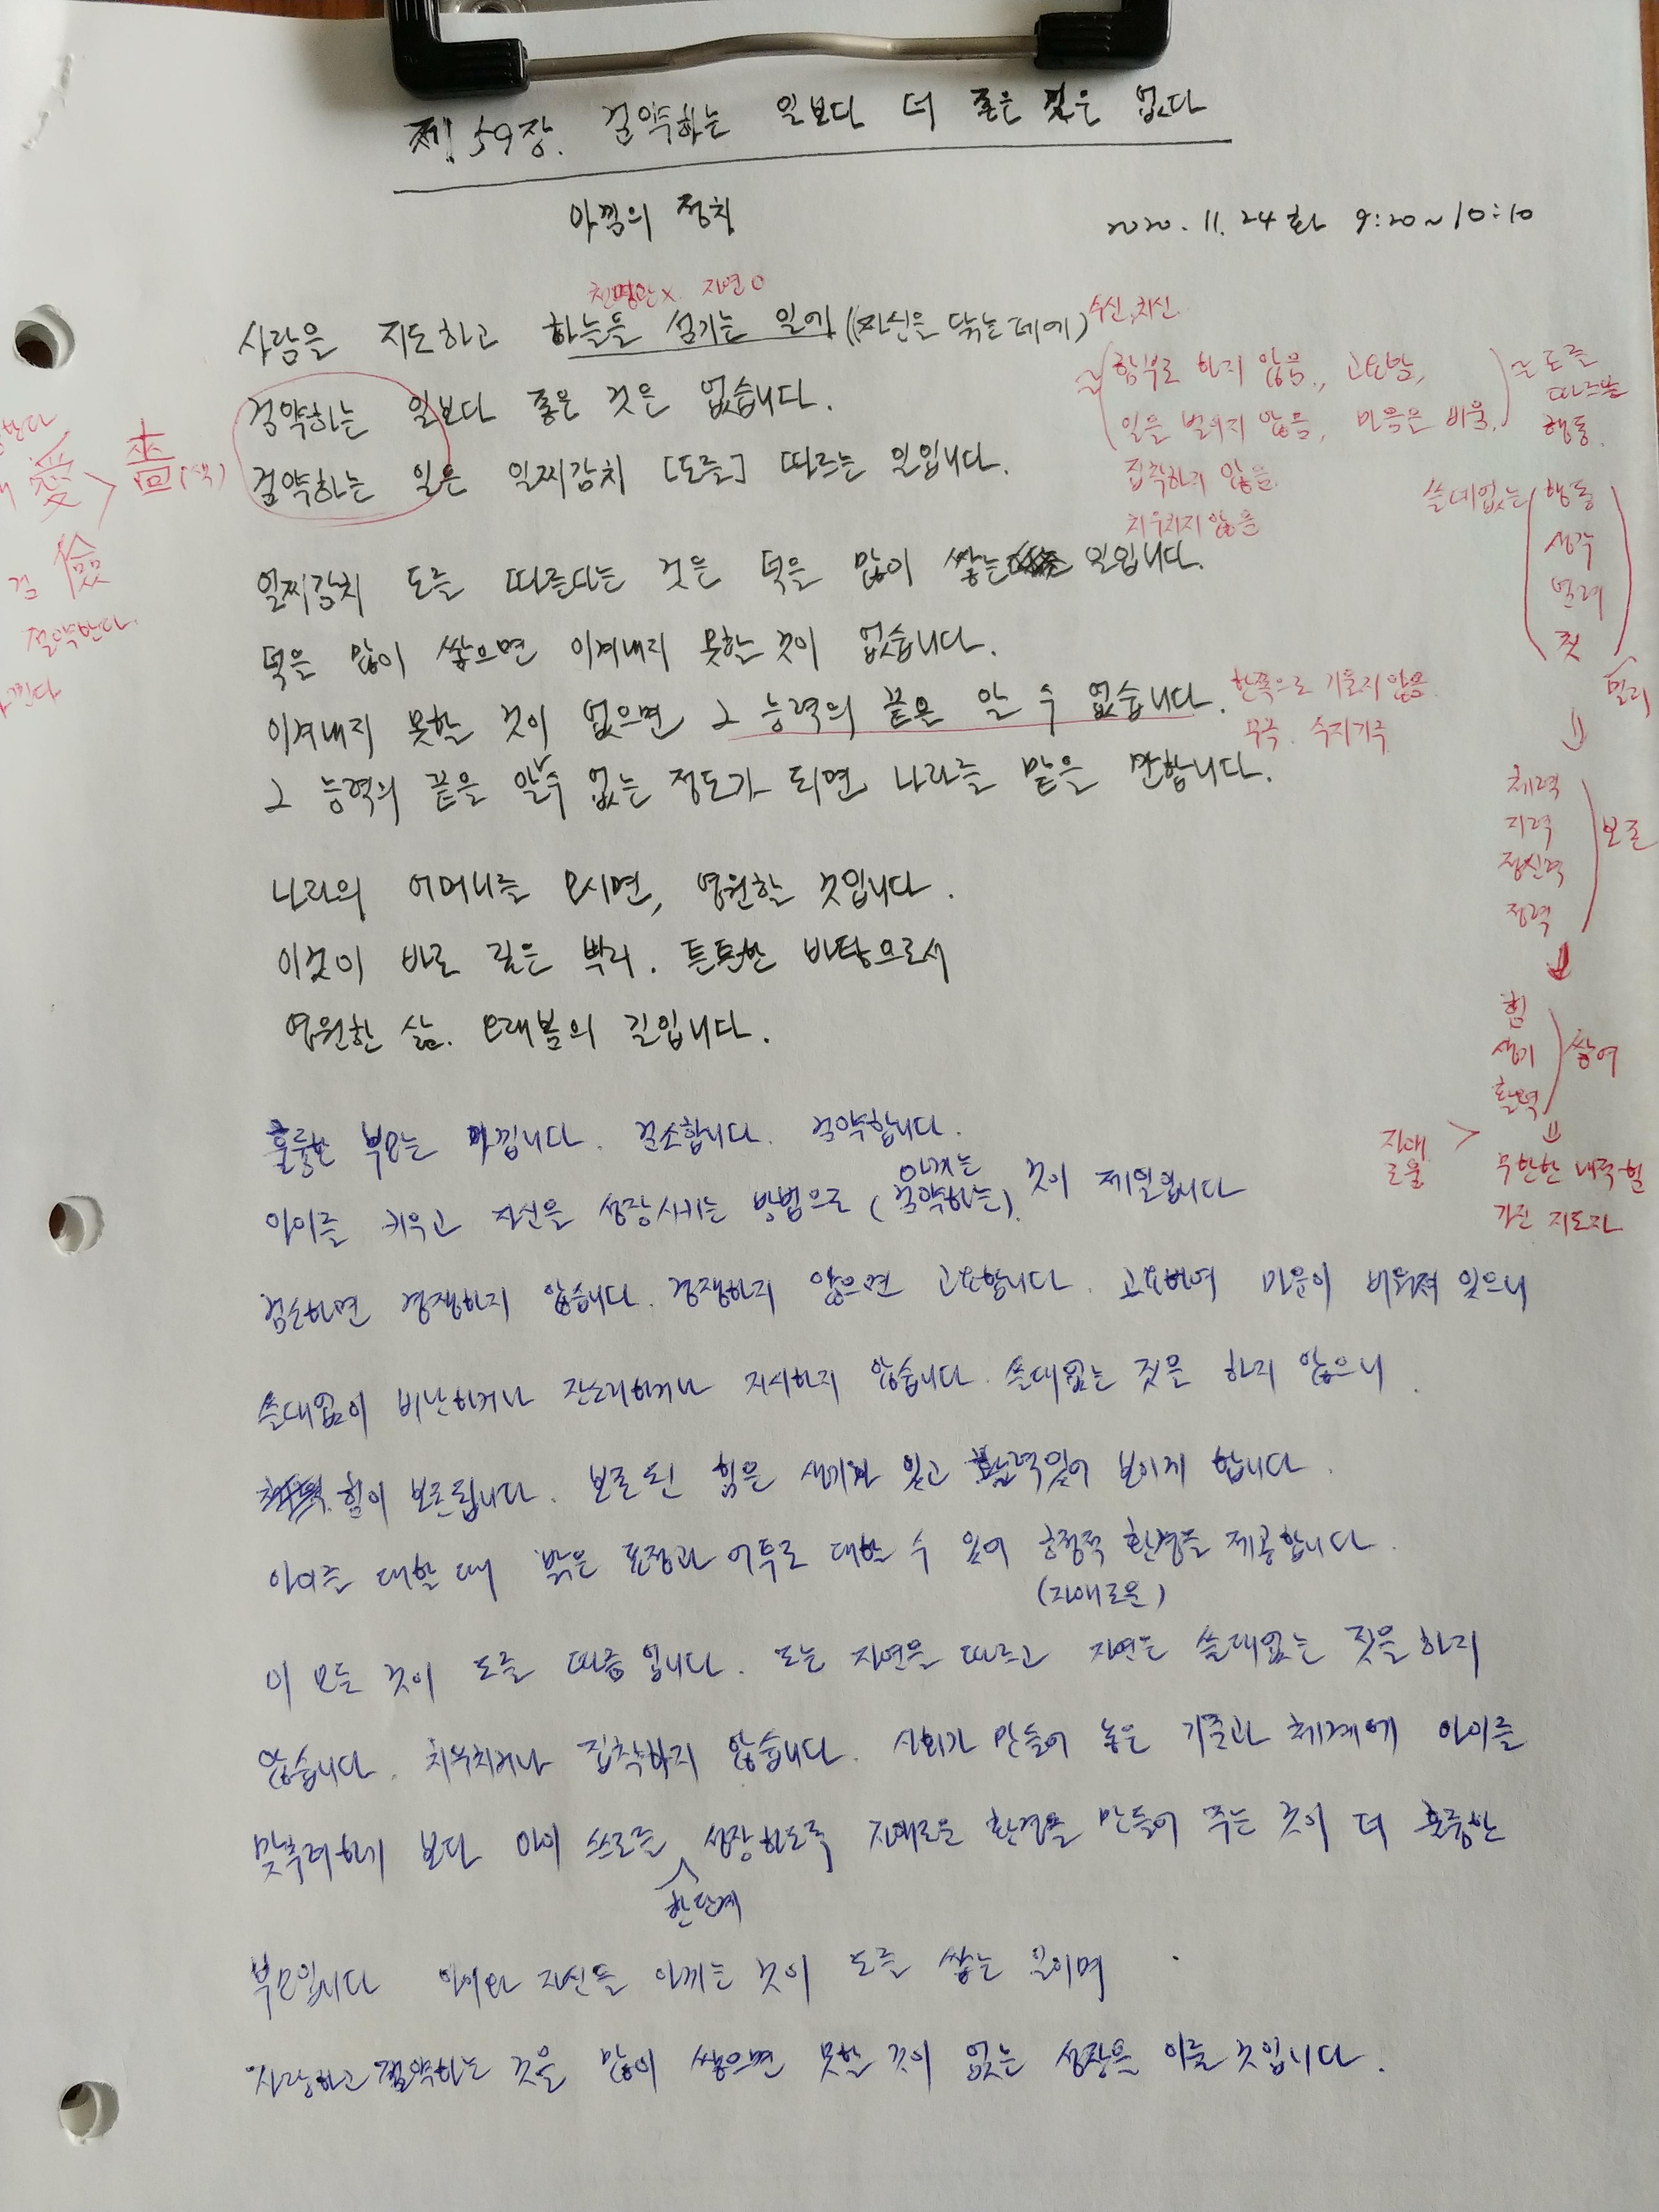 제 59장. 검약하는 일보다 더 좋은 것은 없다
아낌의 정치
2020. 11. 24 화 9:20~10:10
천명관 x. 자연 o
사람을 지도하고 하늘을 섬기는 일에 (자신을 닦는데에)
수신, 치신
검약하는 일보다 좋은 것은 없습니다.
검약하는 일은 일찌감치 [도를] 따르는 일입니다.
함부로 하지 않음, 고요함,
일을 벌리지 않음, 마음은 비움,
집착하지 않음
치우치지 않음
= 도를
따르는
행동
愛 > 嗇 (색)
검 儉
절약한다
쓸데없는
행동
생각
염려
짓
멀리
일찌감치 도를 따른다는 것은 덕을 많이 쌓는 일입니다.
덕을 많이 쌓으면 이겨내지 못할 것이 없습니다.
이겨내지 못할 것이 없으면 그 능력의 끝은 알 수 없습니다.
한쪽으로 기울지 않음
무극. 수지기극
그 능력의 끝을 알 수 없는 정도가 되면 나라를 맡을 만합니다.
체력
지력
정신력
정력
보존
나라의 어머니를 모시면, 영원할 것입니다.
이것이 바로 깊은 뿌리. 튼튼한 바탕으로서
영원한 삶. 오래봄의 길입니다.
힘
생기
활력
쌓여
자애로움 >
무한한 내적 힘
가진 지도자
훌륭한 부모는 아낍니다. 검소합니다. 검약합니다.
아끼는
아이를 키우고 자신을 성장시키는 방법으로 (검약하는) 것이 제일입니다
검소하면 경쟁하지 않습니다. 경쟁하지 않으면 고요합니다. 고요하여 마음이 비워져 있으니
쓸데없이 비난하거나 잔소리하거나 지시하지 않습니다. 쓸데없는 짓을 하지 않으니
힘이 보존됩니다. 보존된 힘은 생기가 있고 활력있어 보이게 합니다.
아이를 대할 때 밝은 표정과 어투로 대할 수 있어 긍정적 환경을 제공합니다.
(자애로운)
이 모든 것이 도를 따름입니다. 도는 자연을 따르고 자연은 쓸데없는 짓을 하지
않습니다. 치우치거나 집착하지 않습니다. 사회가 만들어 놓은 기준과 체계에 아이를
맞추려하기 보다 아이 스스로 성장하도록 자애로운 환경을 만들어 주는 것이 더 훌륭한
한단계
부모입니다 아이와 자신을 아끼는 것이 도를 쌓는 일이며
사랑하고 검약하는 것을 많이 쌓으면 못할 것이 없는 성장을 이룰 것입니다.